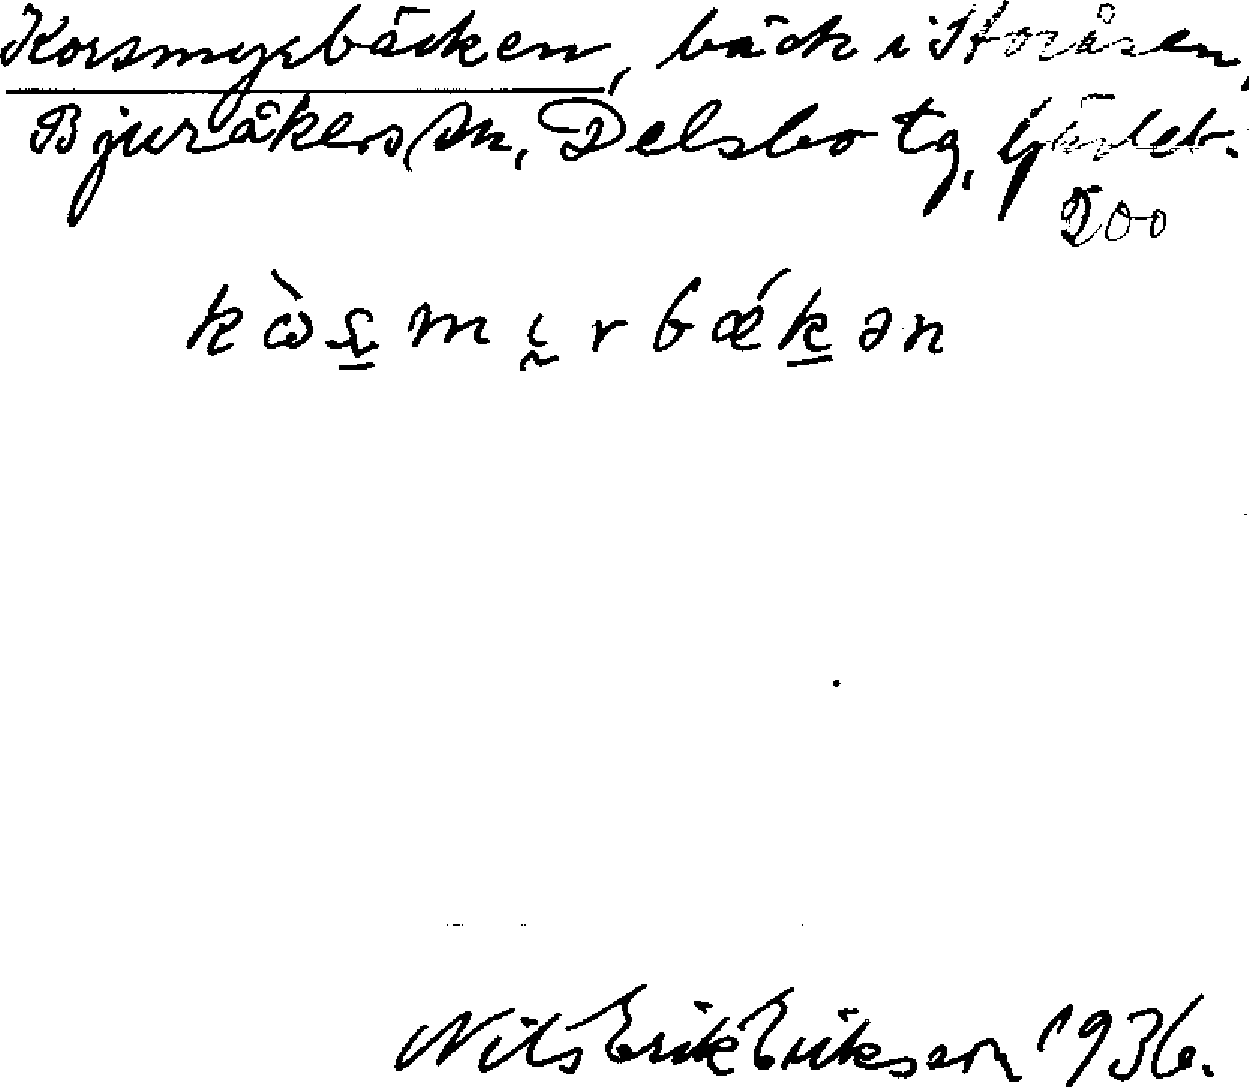 Korsmyrbäcken, bäck i Storåsen,
Bjuråkers sn, Delsbo tg, Gävleb.
200
kὼs̲mɩ̰rbǽk̲ən
Nils Erik Eriksson 1936.